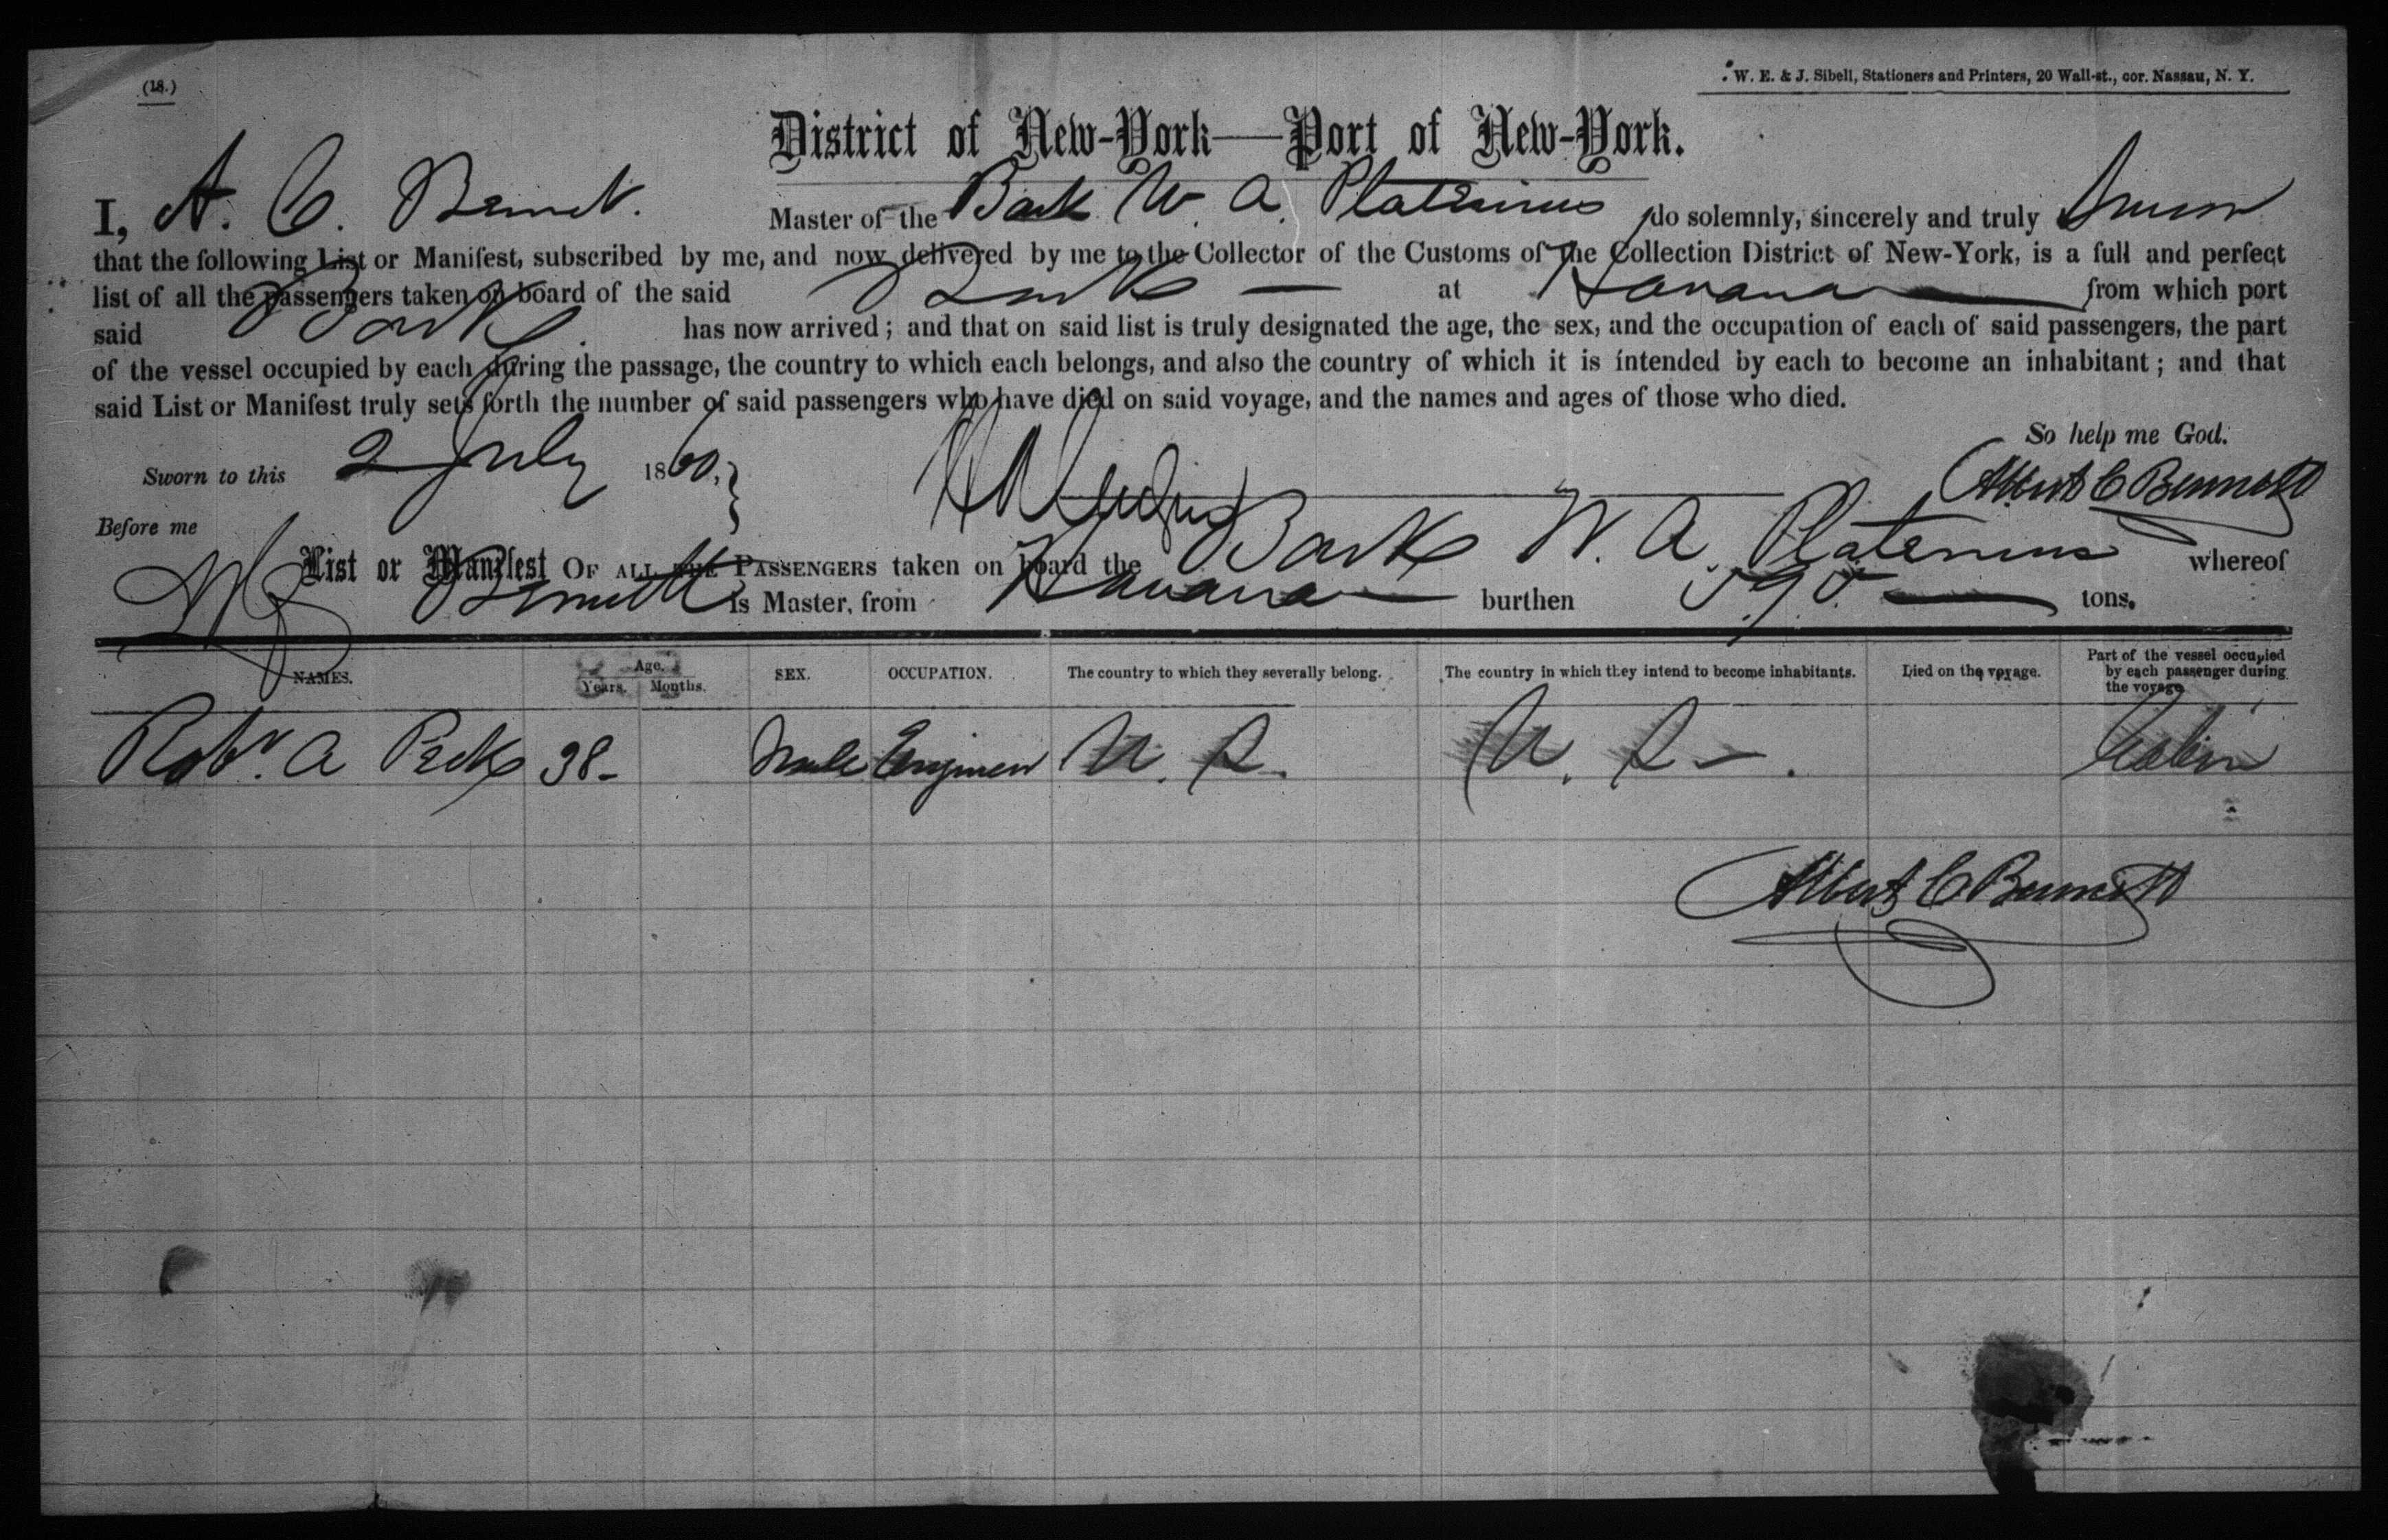 (18.)
W. E. & J. Sibell, Stationers and Printers, 20 Wall-st., cor. Nassau, N. Y.
District of New-York—Port of New-York.
I, A. C. Bennet. Master of the Bark W. A. Platenius do solemnly, sincerely and truly swear
that the following List or Manifest, subscribed by me, and now delivered by me to the Collector of the Customs of the Collection District of New-York, is a full and perfect
list of all the passengers taken on board of the said Bark — at Havana from which port
said Bark has now arrived; and that on said list is truly designated the age, the sex, and the occupation of each of said passengers, the part
of the vessel occupied by each during the passage, the country to which each belongs, and also the country of which it is intended by each to become an inhabitant; and that
said List or Manifest truly sets forth the number of said passengers who have died on said voyage, and the names and ages of those who died.
So help me God.
Sworn to this 2 July 1860, Albert C Bennett
Before me
List or Manifest OF ALL THE PASSENGERS taken on board the Bark W. A. Platenius whereof
Bennett is Master, from Havana burthen 595 tons.
NAMES. Age. Years. Months. SEX. OCCUPATION. The country to which they severally belong. The country in which they intend to become inhabitants. Died on the voyage. Part of the vessel occupied by each passenger during the voyage
Robt. A Peck 38- Male Engineer U. S. U. S -. Cabin
Albert C Bennett